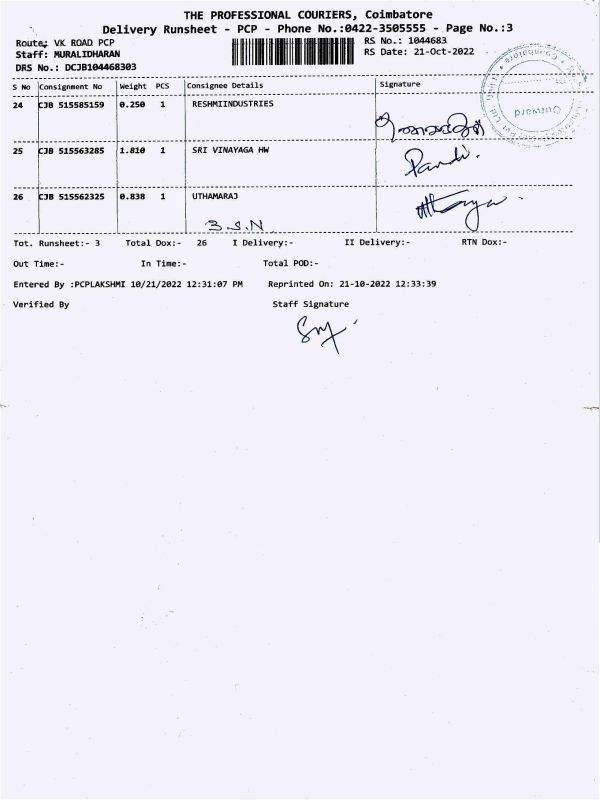 THE PROFESSIONAL COURIERS, Coimbatore
Delivery Runsheet - PCP - Phone No.:0422-3505555 - Page No.:3
Route: VK ROAD PCP
RS No.: 1044683
Staff: MURALIDHARAN
RS Date: 21-Oct-2022
DRS No.: DCJB104468303
S No Consignment No Weight PCS Consignee Details Signature
24 CJB 515585159 0.250 1 RESHMIINDUSTRIES
25 CJB 515563285 1.810 1 SRI VINAYAGA HW
Pandi.
26 CJB 515562325 0.838 1 UTHAMARAJ
B.S.N.
Tot. Runsheet:- 3 Total Dox:- 26 I Delivery:- II Delivery:- RTN Dox:-
Out Time:- In Time:- Total POD:-
Entered By :PCPLAKSHMI 10/21/2022 12:31:07 PM Reprinted On: 21-10-2022 12:33:39
Verified By Staff Signature
Coimbatore
Outward